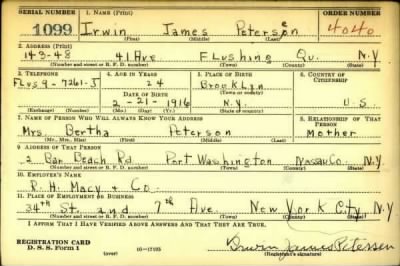 SERIAL NUMBER 1. NAME (Print) ORDER NUMBER
1099 Irwin James Petersen 4040
(First) (Middle) (Last)
2. ADDRESS (Print)
143-48 41 Ave Flushing Qu. N.Y
(Number and street or R. F. D. number) (Town) (County) (State)
3. TELEPHONE 4. AGE IN YEARS 5. PLACE OF BIRTH 6. COUNTRY OF CITIZENSHIP
24 Brooklyn
FLus 9-7261-J DATE OF BIRTH (Town or county)
2-21-1916 N.Y. U.S.
(Exchange) (Number) (Mo.) (Day) (Yr.) (State or country)
7. NAME OF PERSON WHO WILL ALWAYS KNOW YOUR ADDRESS 8. RELATIONSHIP OF THAT PERSON
Mrs. Bertha Peterson Mother
(Mr., Mrs., Miss) (First) (Middle) (Last)
9. ADDRESS OF THAT PERSON
2 Bar Beach Rd Port Washington Nassau Co. N.Y
(Number and street or R. F. D. number) (Town) (County) (State)
10. EMPLOYER'S NAME
R. H. Macy & Co.
11. PLACE OF EMPLOYMENT OR BUSINESS
34th St. and 7th Ave New York City N.Y
(Number and street or R. F. D. number) (Town) (County) (State)
I AFFIRM THAT I HAVE VERIFIED ABOVE ANSWERS AND THAT THEY ARE TRUE.
REGISTRATION CARD
D. S. S. Form 1 16-17105 Irwin James Petersen
(Registrant's signature)